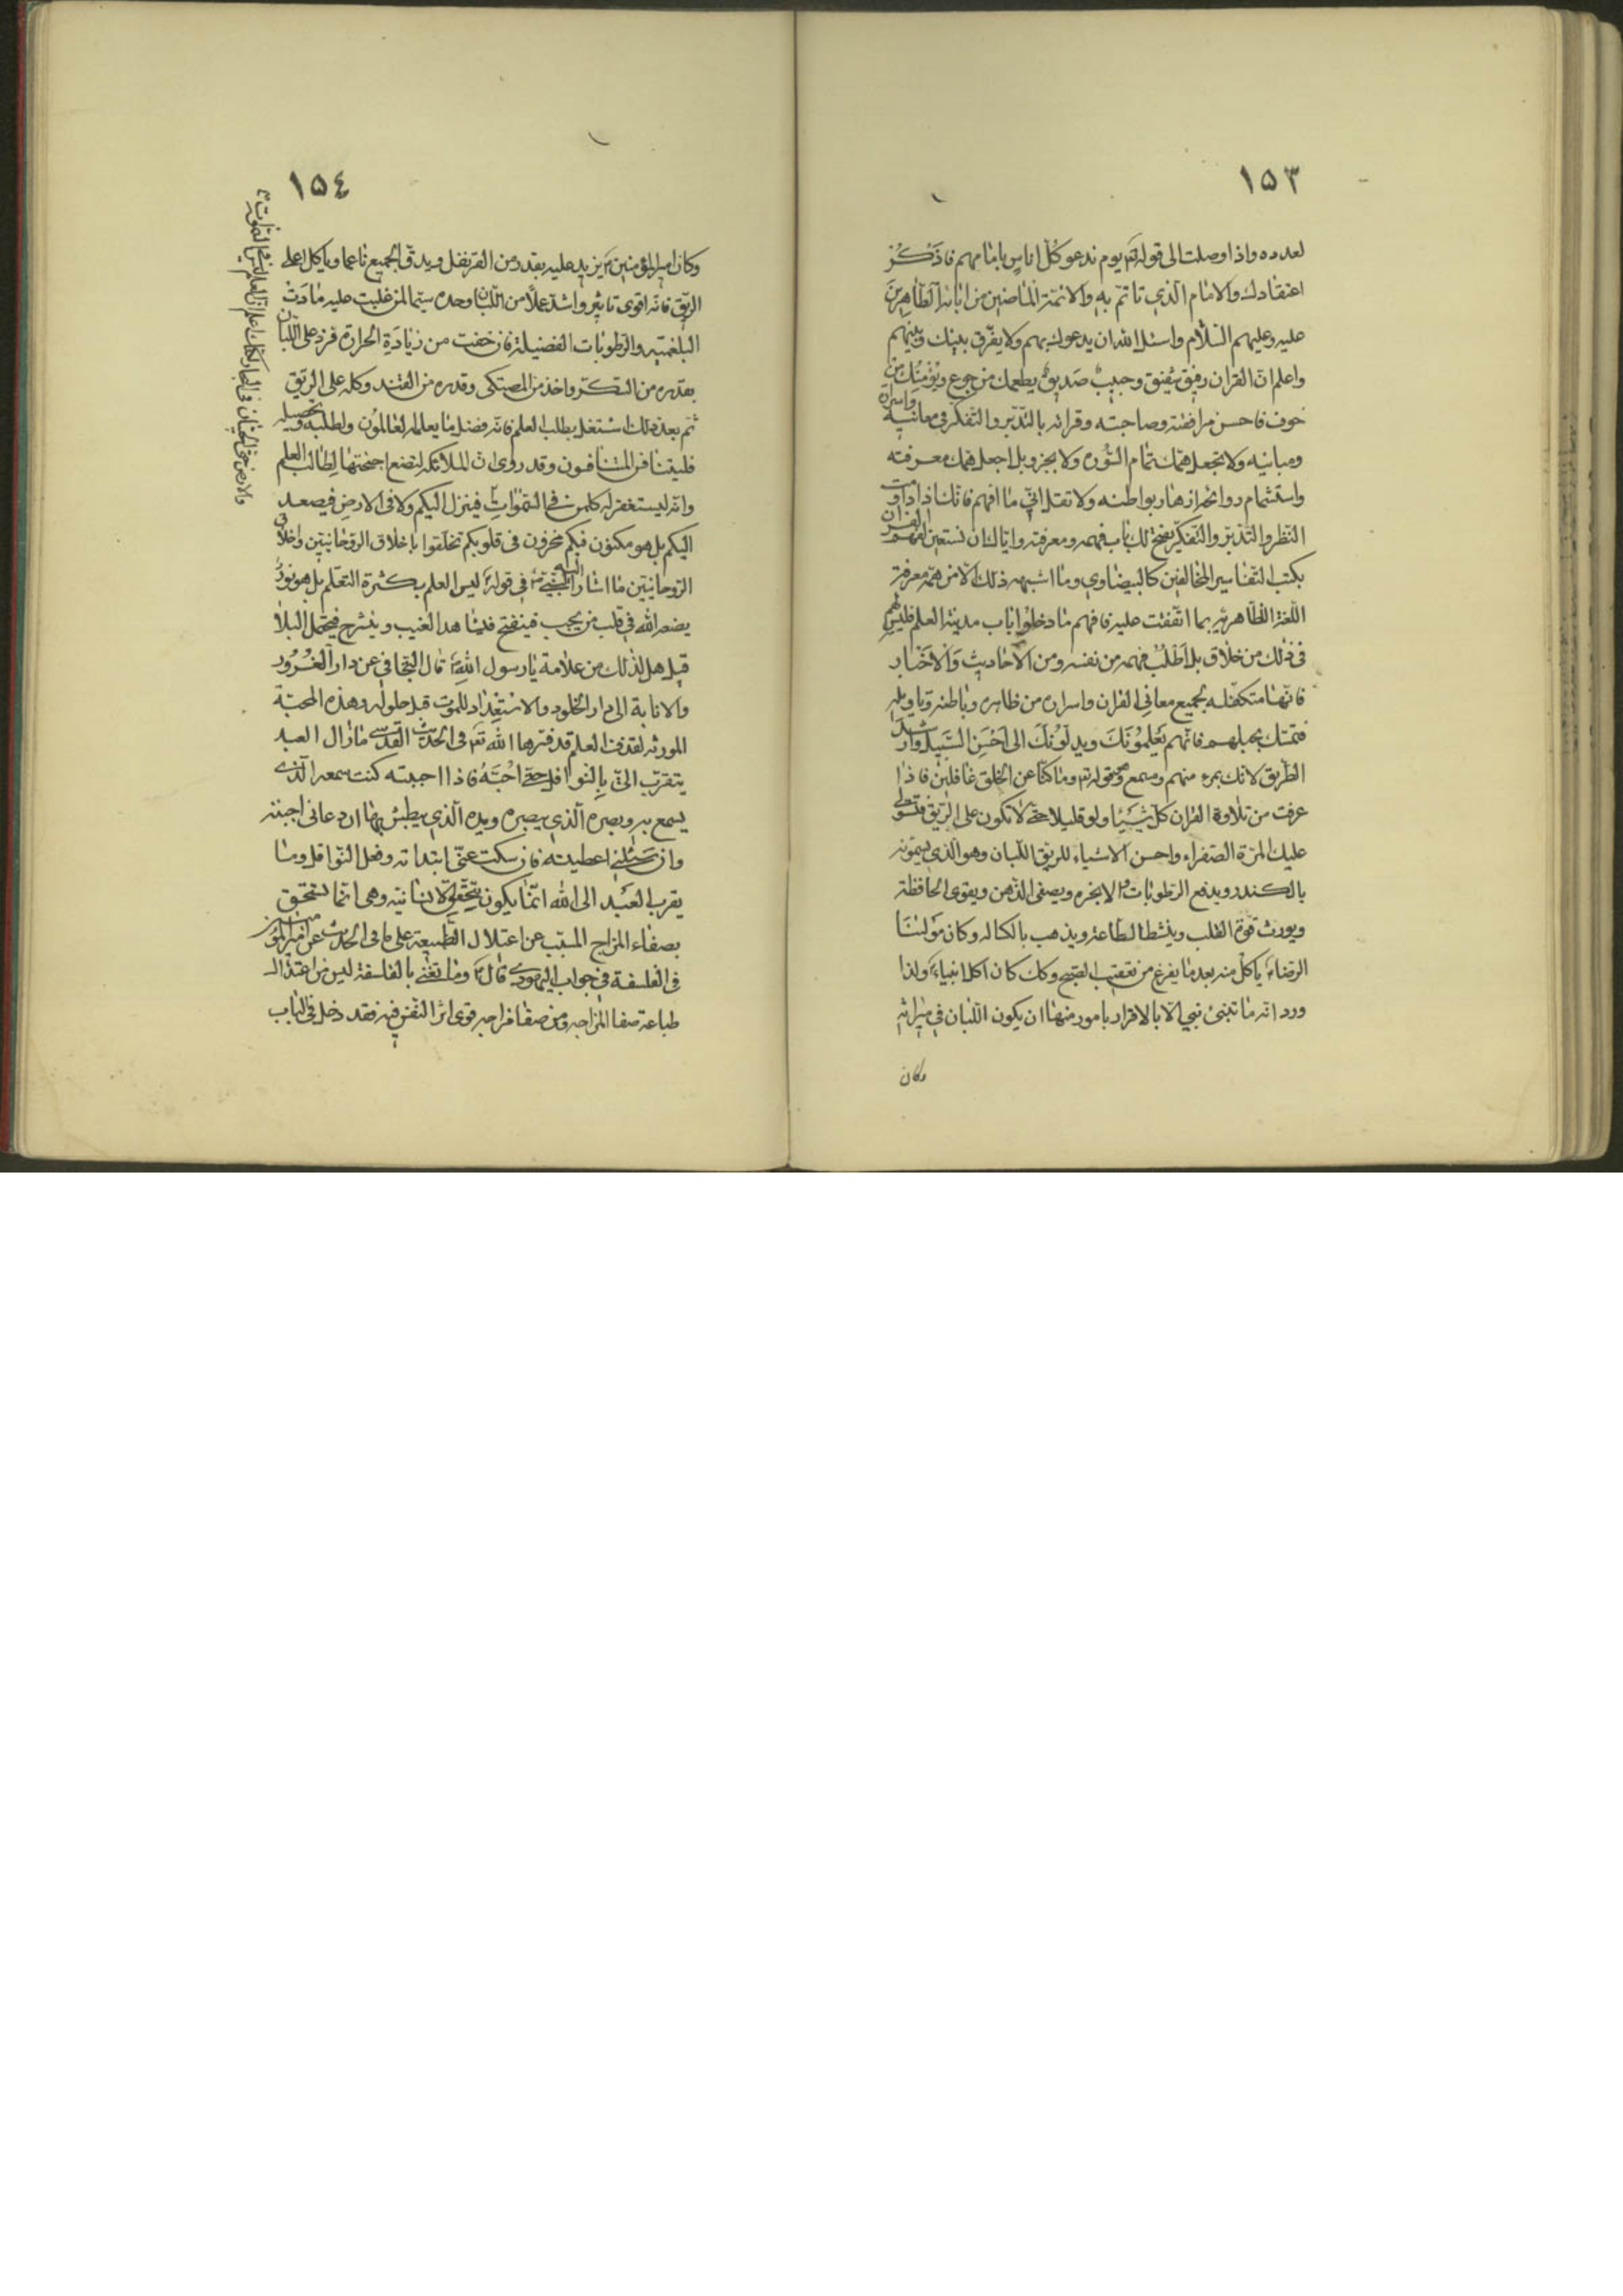 ١٥٣
لعدده واذا وصلت الى قوله تع يوم ندعو كل اناس بامامهم فاذكر
اعتقادك والامام الذي تاتم به والائمة الماضين من ابائه الطاهرين
عليه وعليهم السلام واسئل الله ان يدعوك بهم ولا يفرق بينك وبينهم
واعلم ان القران رفيق شفيق وحبيب صديق يطعمك من جوع ويؤمنك من
خوف فاحسن مرافقته وصاحبته وقرائته بالتدبر والتفكر في معانيه واسراره
ومبانيه ولا تجعل همك تمام السوره ولا بجزو بل اجعل همك معرفته
واستشمام روائح ازهار بواطنه ولا تقل اني ما افهم فانك اذا داومت
النظر والتدبر والتفكر يفتح لك باب فهمه ومعرفته واياك ان تستعين لفهم القران
بكتب التفاسير المخالفين كالبيضاوي وما اشبهه ذلك الا من جهة معرفة
اللغة الظاهريه بما اتفقت عليه فافهم ما دخلوا باب مدينة العلم فليس لهم
في ذلك من خلاق بل اطلب فهمه من نفسه ومن الاحاديث والاخبار
فانها متكفله بجميع معاني القران واسراره من ظاهره وباطنه وتاويله
فتمسك بحبلهم فانهم يعلمونك ويدلونك الى احسن السبيل وارشد
الطريق لانك بمرء منهم ومسمع وهو قوله تع وما كنا عن الخلق غافلين فاذا
عرفت من تلاوة القران كل شيئا ولو قليلا حتى لا تكون على الريق فتستولى
عليك المرة الصفراء واحسن الاشياء للريق اللبان وهو الذي يسمونه
بالكندر ويدفع الرطوبات والابخره ويصفى الذهن ويقوى الحافظة
ويورث قوة القلب وينشط الطاعة ويذهب بالكساله وكان مولينا
الرضاء ياكل منه بعد ما يفرغ من تعقيب الصبح وكك كان اكل انبياء ولذا
ورد انه ما تنبئ نبي الا بالاقرار بامور منها ان يكون اللبان في ميراثه
وكان
١٥٤
وكان امير المؤمنين ع يزيد عليه بقدره من القرنفل ويدق الجميع ناعما وياكل على
الريق فانه اقوى تاثير واشد عملا من اللبان وحده سيما لمن غلبت عليه مادت
البلغميه والرطوبات الفضيلة فان خفت من زيادة الحرارة فزد على اللبان
بقدره من السكر واخذ من المصتكى وقدره من القند وكله على الريق
ثم بعد ذلك اشتغل بطلب العلم فانه افضل ما يعلمه العالمون ولطلبه وتحصيله
فليتنافس المتنافسون وقد روى ان الملائكه لتضع اجنحتها لطالب العلم
وانه ليستغفر له كلمن في السموات فينزل اليكم ولا في الارض فيصعد
اليكم بل هو مكنون فيكم مخزون في قلوبكم تخلقوا باخلاق الروحانيين واخلاق
الروحانيين ما اشار اليه النبي ص في قوله ليس العلم بكثرة التعلم بل هو نور
يضعه الله في قلب من يحب فينفتح فيشاهد الغيب وينشرح فيحتمل البلا
قيل هل لذلك من علامة يا رسول الله ص قال التجافي عن دار الغرور
والانابة الى دار الخلود والاستعداد للموت قبل حلوله وهذه المحبة
المورثه لقذف العلم قد فسرها الله تع في الحديث القدسى ما زال العبد
يتقرب الى بالنوافل حتى احبه فاذا احببته كنت سمعه الذي
يسمع به وبصره الذي يبصره ويده الذي يبطش بها ان دعاني اجبته
وان سئلني اعطيته فان سكت عني ابتداته وفعل النوافل وما
يقرب العبد الى الله انما يكون بتحقق الانسانيه وهي انما تتحقق
بصفاء المزاج المسبب عن اعتلال الطبيعة على ما في الحديث عن امير المؤمنين
في الفلسفة في جواب اليهودي قال ع وما تعنى بالفلسفة اليس من اعتدال
طباعه صفا المزاجه ومن صفا مزاجه قوى اثر النفس فيه فقد دخل في الباب